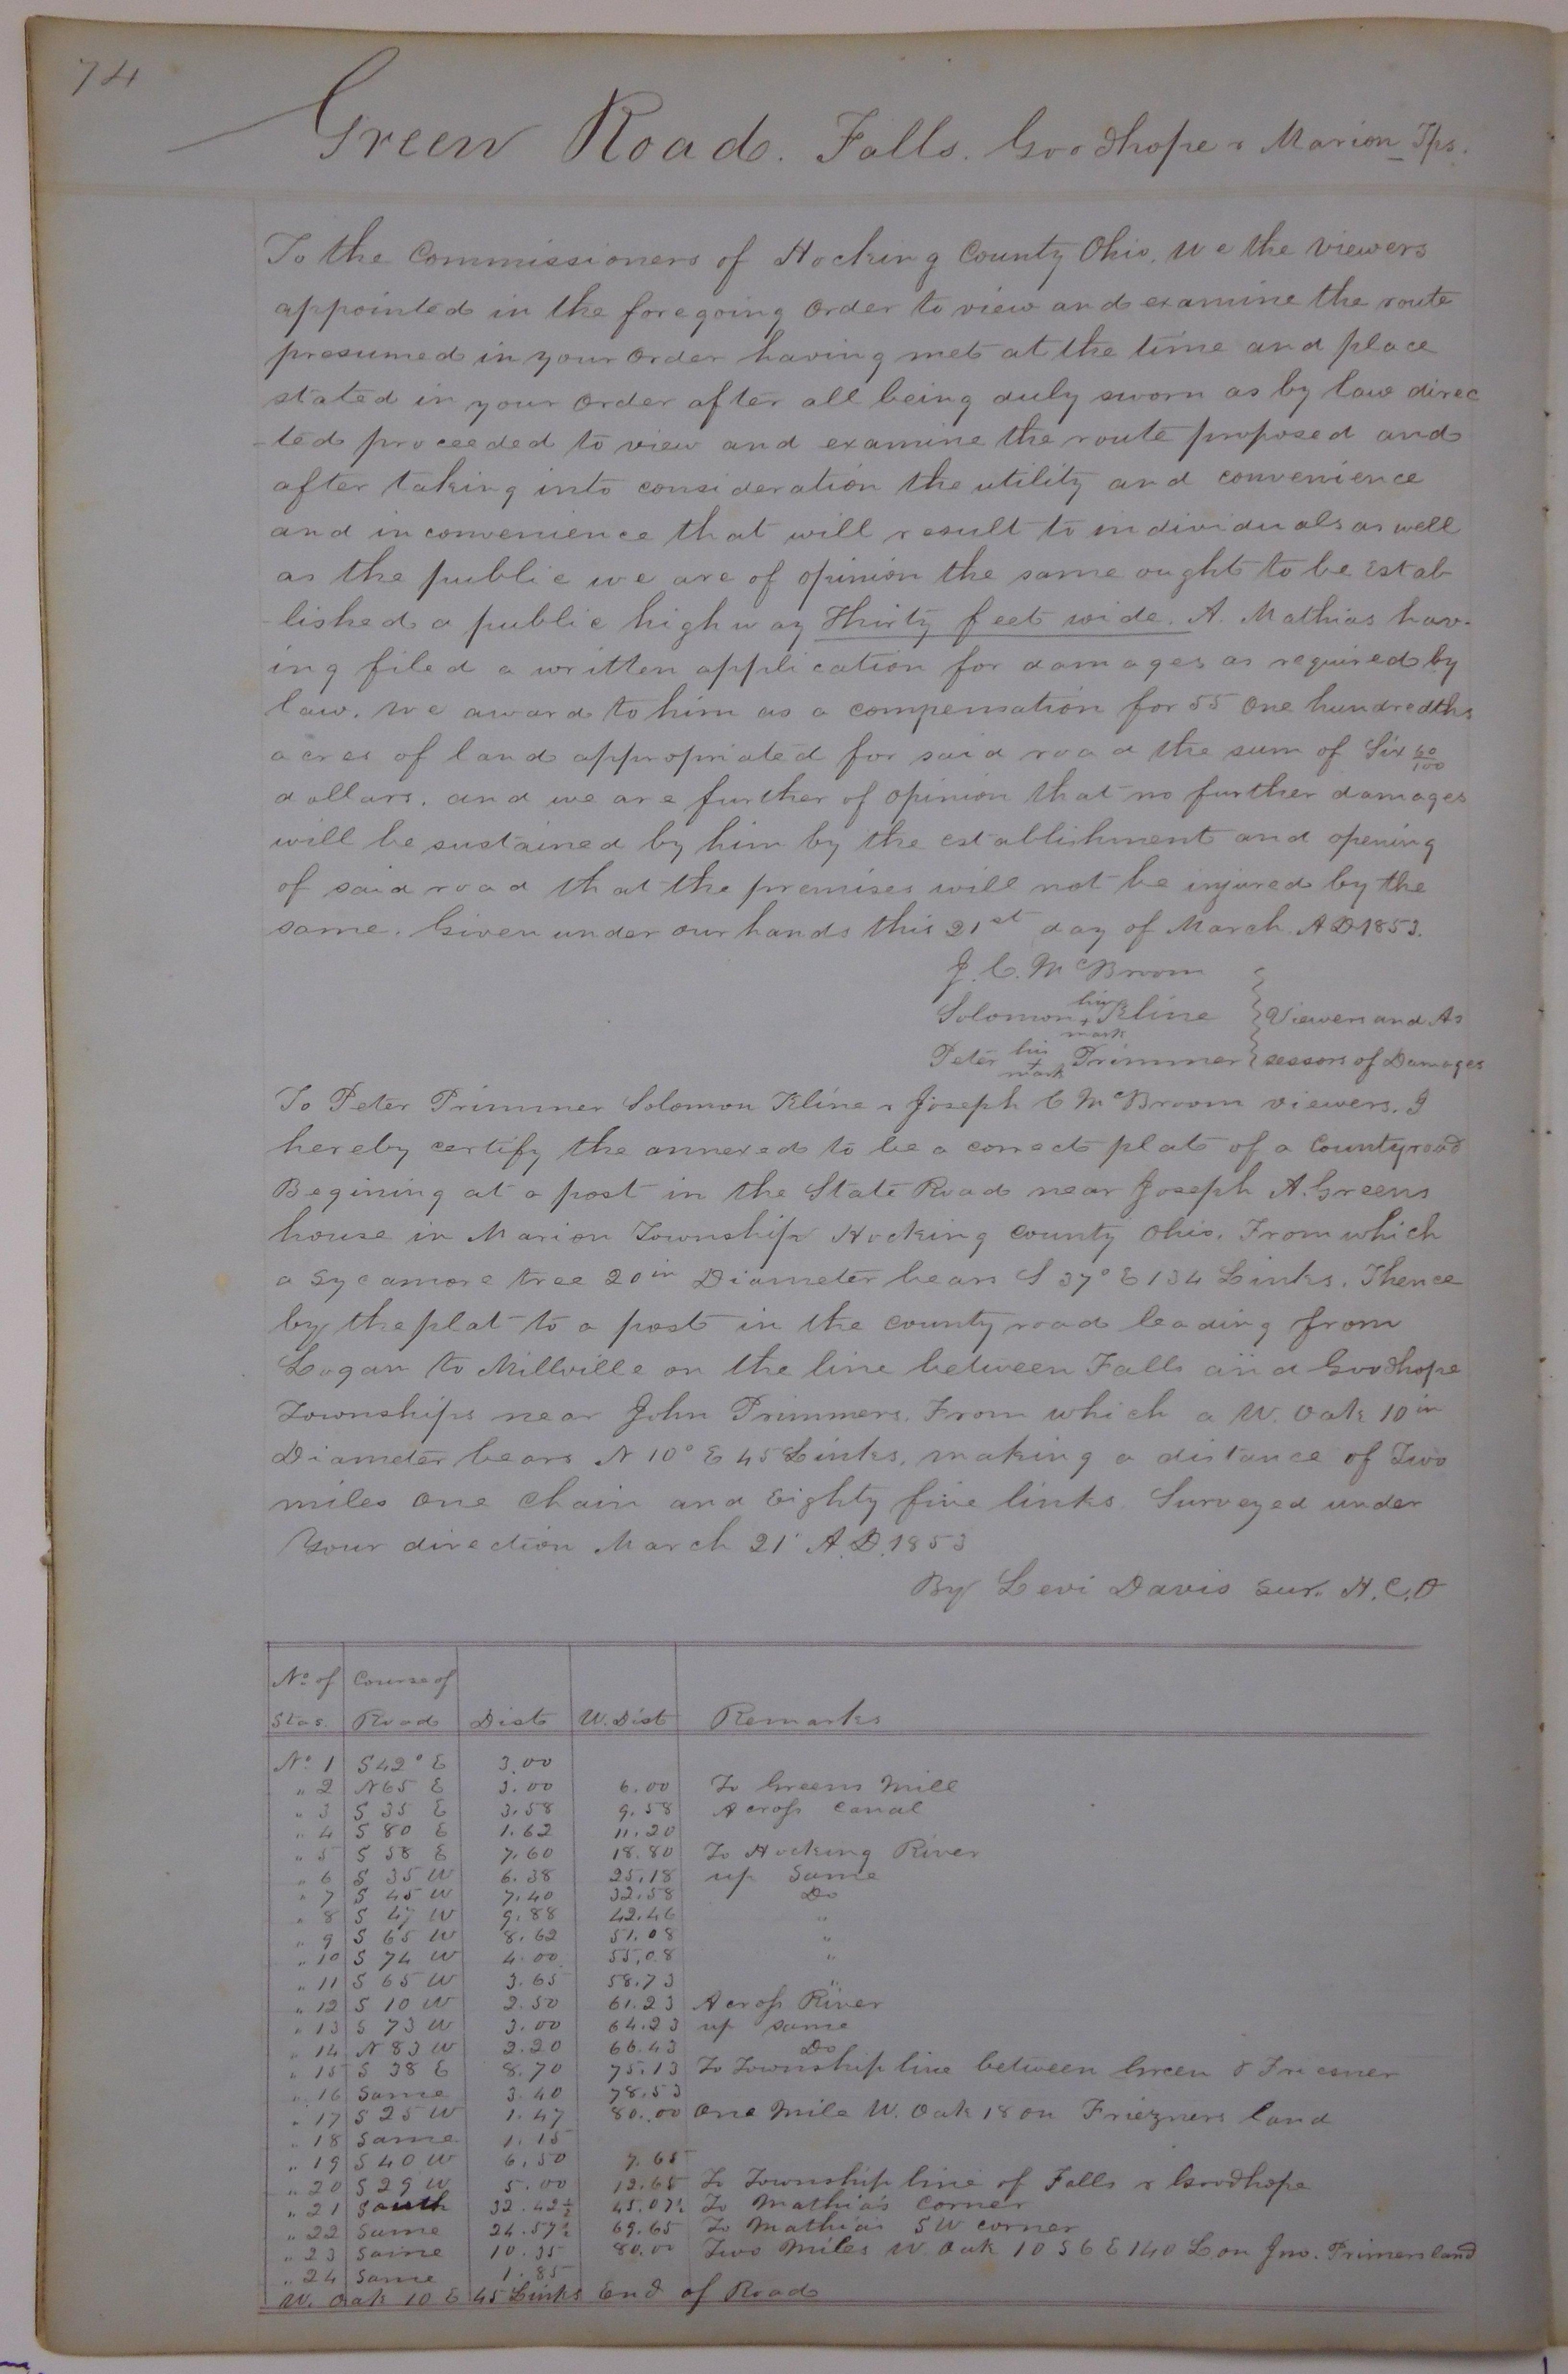 74
Green Road. Falls. Goodhope & Marion Tps.
To the Commissioners of Hocking County Ohio, We the viewers
appointed in the foregoing order to view and examine the route
presumed in your order having met at the time and place
stated in your order after all being duly sworn as by law direc
-ted proceeded to view and examine the route proposed and
after taking into consideration the utility and convenience
and inconvenience that will result to individuals as well
as the public we are of opinion the same ought to be Estab-
-lished a public highway Thirty feet wide. A. Mathias hav-
ing filed a written application for damages as required by
law. We award to him as a compensation for 55 One hundredths
acres of land appropriated for said road the sum of Six 60/100
dollars. and we are further of opinion that no further damages
will be sustained by him by the establishment and opening
of said road that the premises will not be injured by the
same. Given under our hands this 21st day of March. AD 1853.
J. C. McBroom
Solomon his + mark Kline } Viewers and As
Peter his + mark Primmer } sessors of Damages
To Peter Primmer Solomon Kline & Joseph C McBroom viewers. I
hereby certify the annexed to be a correct plat of a County road
Begining at a post in the State Road near Joseph A. Greens
house in Marion Township Hocking County Ohio. From which
a Sycamore tree 20in Diameter bears S 37° E 134 Links. Thence
by the plat to a post in the county road leading from
Logan to Millville on the line between Falls and Goodhope
Townships near John Primmers. From which a W. Oak 10in
Diameter bears N 10° E 45 Links. making a distance of Two
miles one chain and Eighty five links. Surveyed under
Your direction March 21 A.D. 1853
By Levi Davis Sur. H.C.O
No of Stas. Course of Road Dist W. Dist Remarks
No 1 S 42° E 3.00
" 2 N 65 E 3.00 6.00 To Greens Mill
" 3 S 35 E 3.58 9.58 Across Canal
" 4 S 80 E 1.62 11.20
" 5 S 58 E 7.60 18.80 To Hocking River
" 6 S 35 W 6.38 25.18 up Same
" 7 S 45 W 7.40 32.58 Do
" 8 S 47 W 9.88 42.46 "
" 9 S 65 W 8.62 51.08 "
" 10 S 74 W 4.00 55.08 "
" 11 S 65 W 3.65 58.73 "
" 12 S 10 W 2.50 61.23 Across River
" 13 S 73 W 3.00 64.23 up same
" 14 N 83 W 2.20 66.43 Do
" 15 S 38 E 8.70 75.13 To Township line between Green & Friesner
" 16 Same 3.40 78.53
" 17 S 25 W 1.47 80.00 One Mile W. Oak 18 on Friezners land
" 18 Same 1.15
" 19 S 40 W 6.50 7.65
" 20 S 29 W 5.00 12.65 To Township line of Falls & Goodhope
" 21 South 32.42½ 45.07½ To Mathias Corner
" 22 Same 24.57½ 69.65 To Mathias SW corner
" 23 Same 10.35 80.00 Two Miles W. Oak 10 S 6 E 140 L on Jno. Primers land
" 24 Same 1.85
W. Oak 10 E 45 Links End of Road